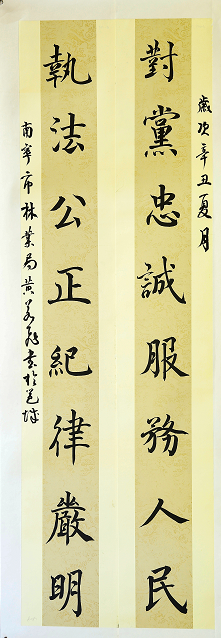 歲次辛丑夏月
對黨忠誠服務人民
執法公正紀律嚴明
南寧市林業局黃